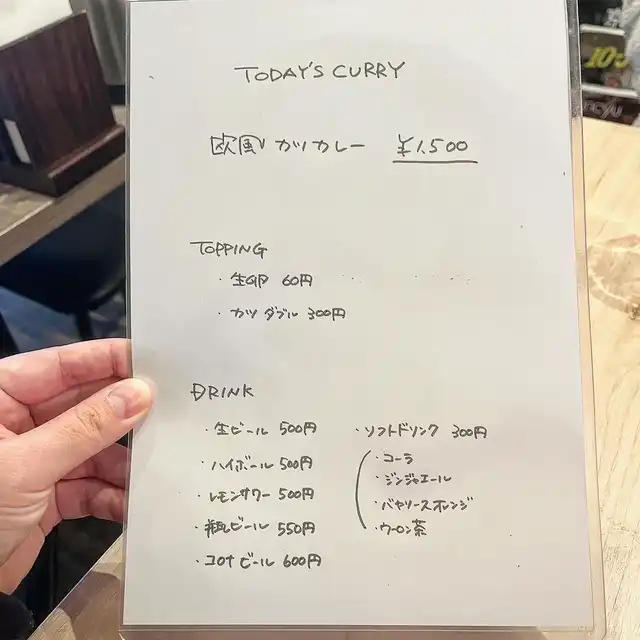 TODAY'S CURRY
欧風 カツカレー ¥1,500
TOPPING
・生卵 60円
・カツ ダブル 300円
DRINK
・生ビール 500円
・ハイボール 500円
・レモンサワー 500円
・瓶ビール 550円
・コロナビール 600円
・ソフトドリンク 300円
・コーラ
・ジンジャエール
・バヤリースオレンジ
・ウーロン茶